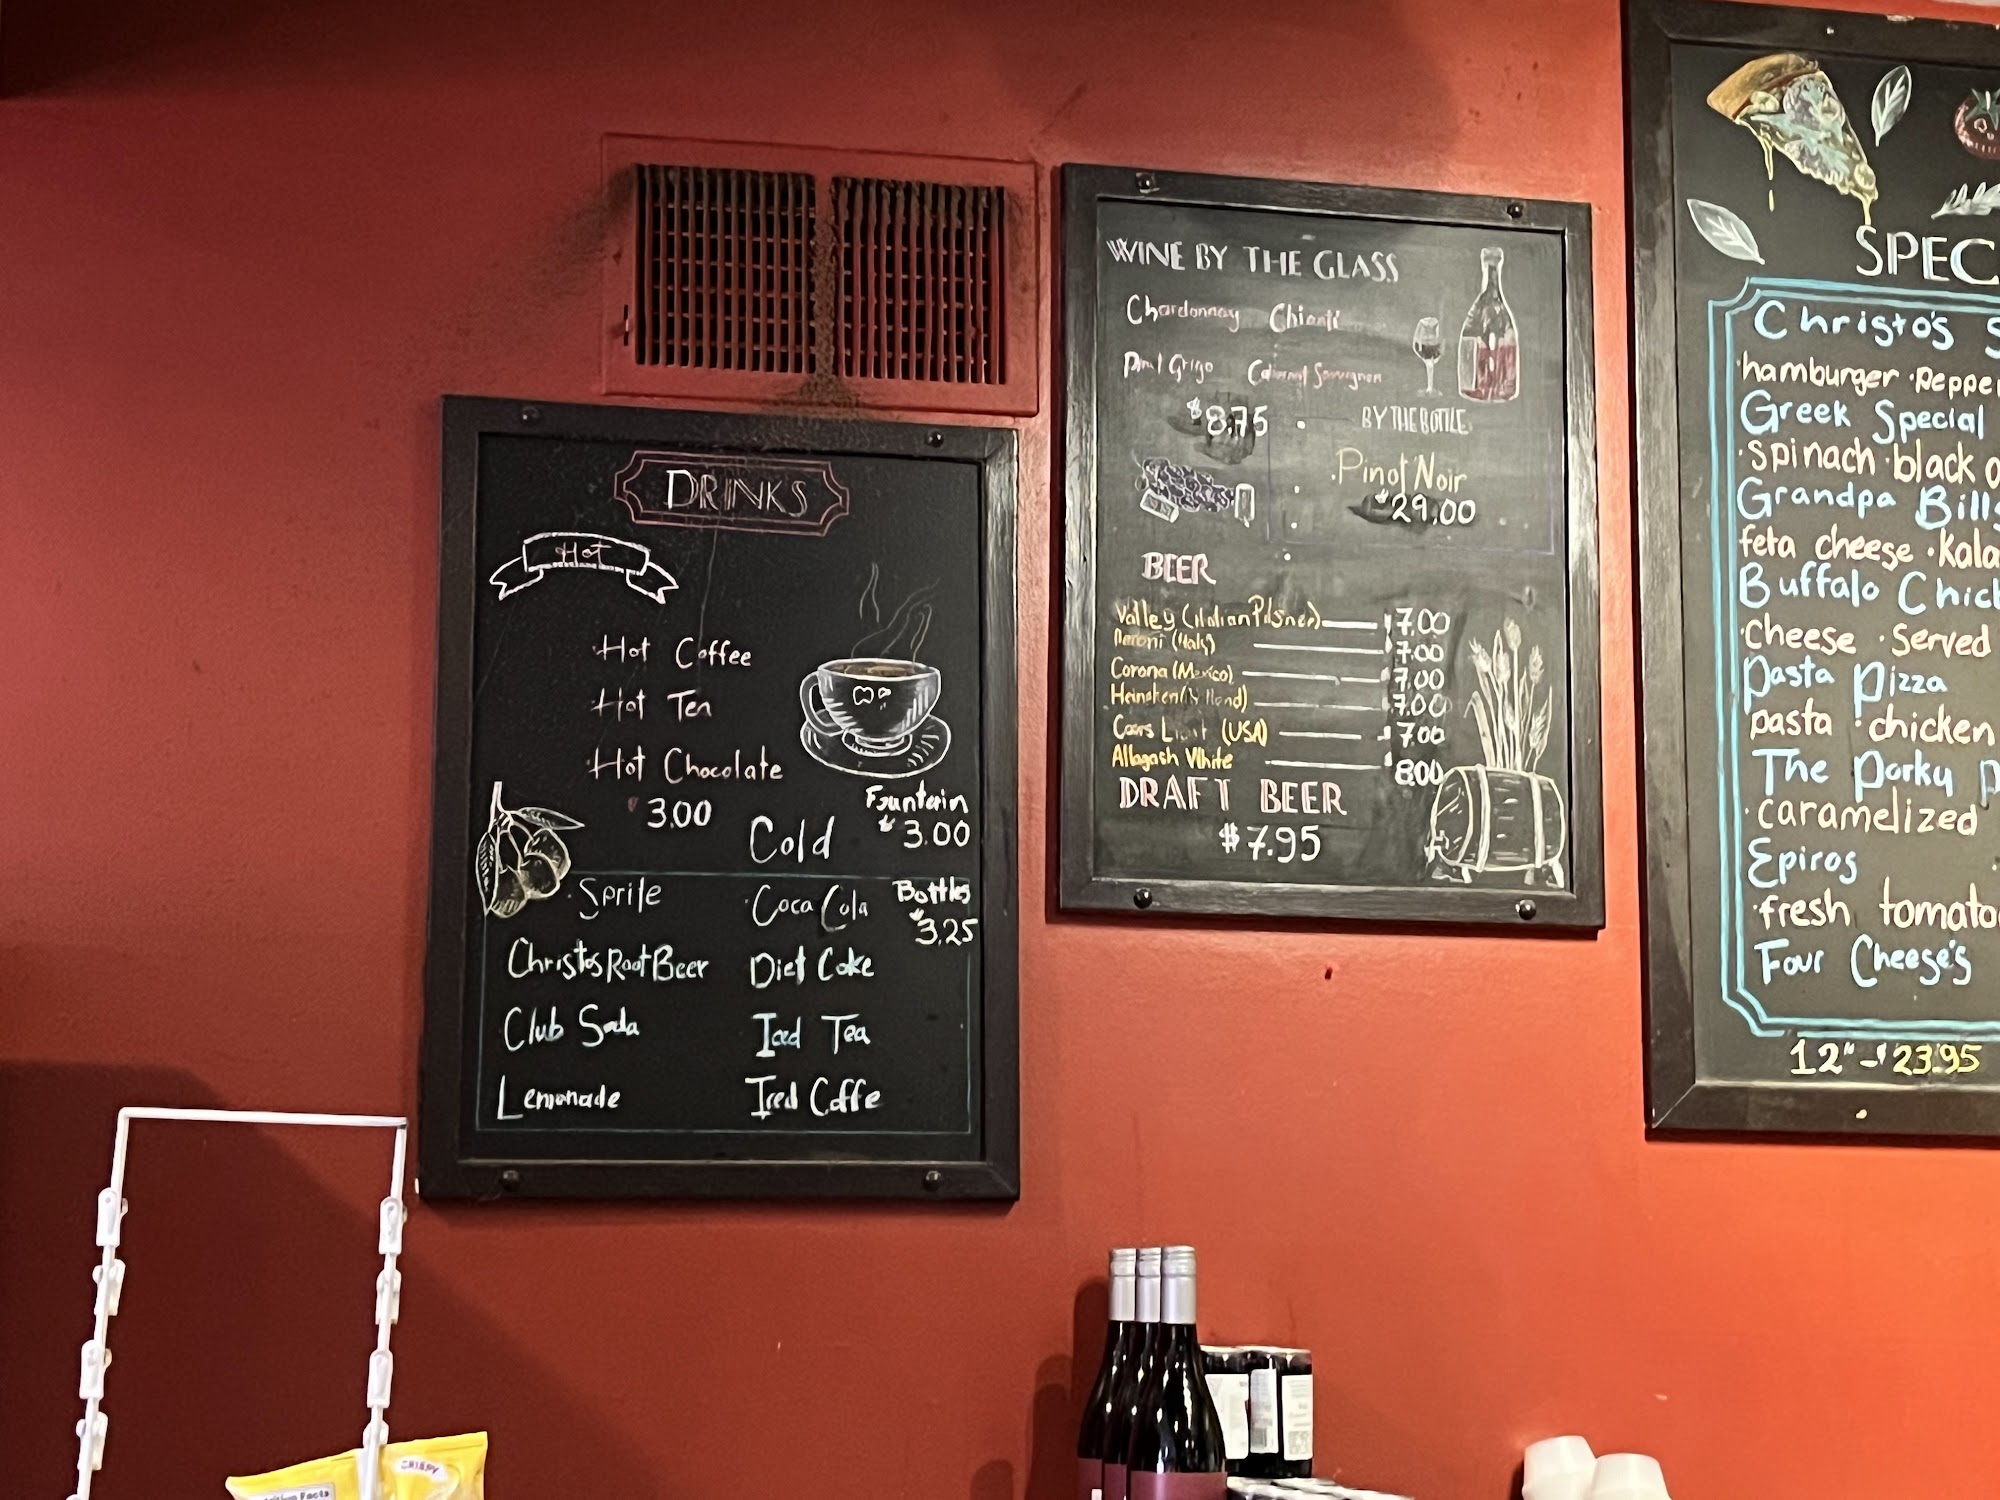 DRINKS
Hot
Hot Coffee
Hot Tea
Hot Chocolate
3.00
Fountain
$3.00
Cold
Bottles
$3.25
Sprite Coca Cola
Christos Root Beer Diet Coke
Club Soda Iced Tea
Lemonade Iced Coffe
WINE BY THE GLASS
Chardonnay Chianti
Pinot Grigo Cabernet Sauvignon
$8.75
BY THE BOTTLE
Pinot Noir
$29.00
BEER
Valley (italian Pilsner) 7.00
Peroni (Italy) 7.00
Corona (Mexico) 7.00
Heineken (Holland) 7.00
Coors Light (USA) 7.00
Allagash White 8.00
DRAFT BEER
$7.95
SPEC
Christo's S
hamburger · peppe
Greek Special
·spinach ·black o
Grandpa Bills
feta cheese ·kala
Buffalo Chick
·cheese ·Served
Pasta Pizza
pasta ·chicken
The Porky P
·caramelized
Epiros
·fresh tomato
Four Cheese's
12"-$23.95
CRISPY
Nutrition Facts